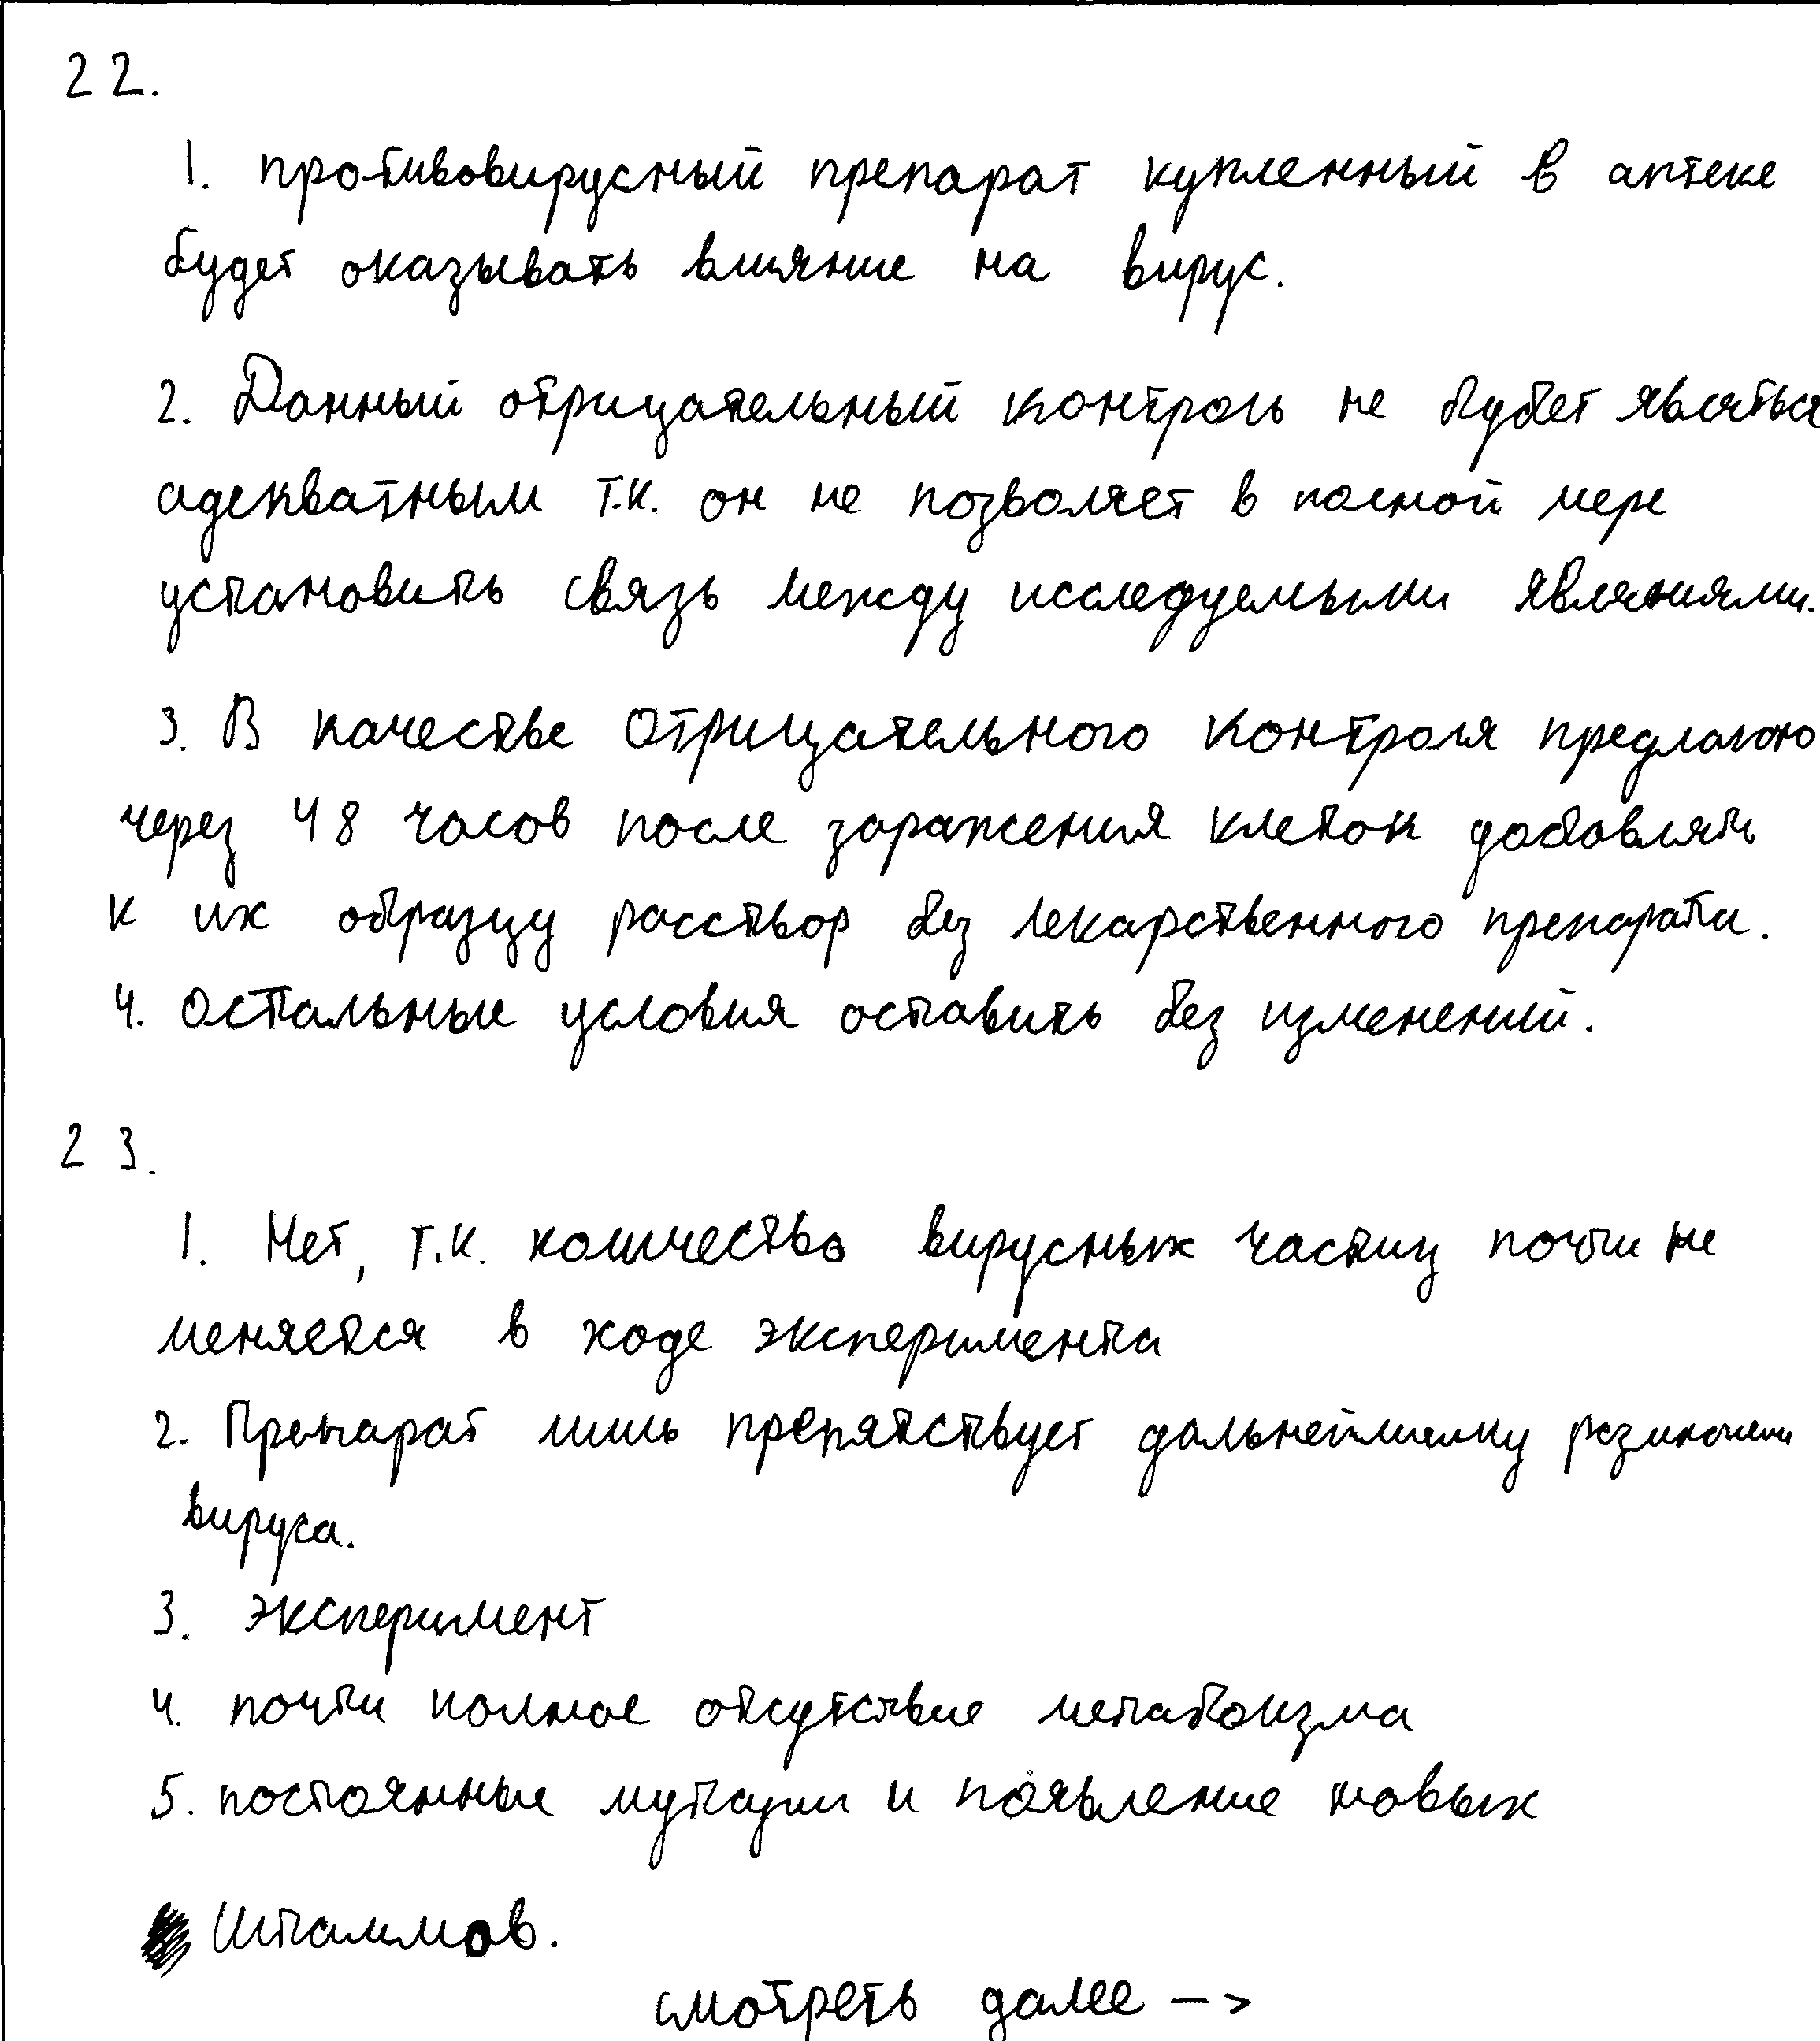 22.
1. противовирусный препарат купленный в аптеке
будет оказывать влияние на вирус.
2. Данный отрицательный контроль не будет являться
адекватным т.к. он не позволяет в полной мере
установить связь между исследуемыми явлениями.
3. В качестве отрицательного контроля предлагаю
через 48 часов после заражения клеток добавлять
к их образцу расствор без лекарственного препарата.
4. Остальные условия оставить без изменений.
23.
1. Нет, т.к. количество вирусных частиц почти не
меняется в ходе эксперимента
2. Препарат лишь препятствует дальнейшему
вируса.
3. эксперимент
4. почти полное отсутствие метаболизма
5. постоянные мутации и появление новых
Штаммов.
смотреть далее —>